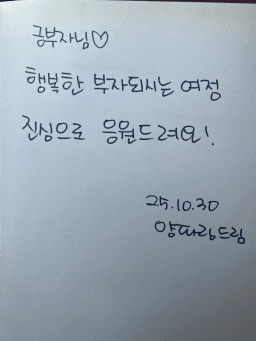 공부자님♡
행복한 부자되시는 여정
진심으로 응원드려요!
25.10.30
양파링드림